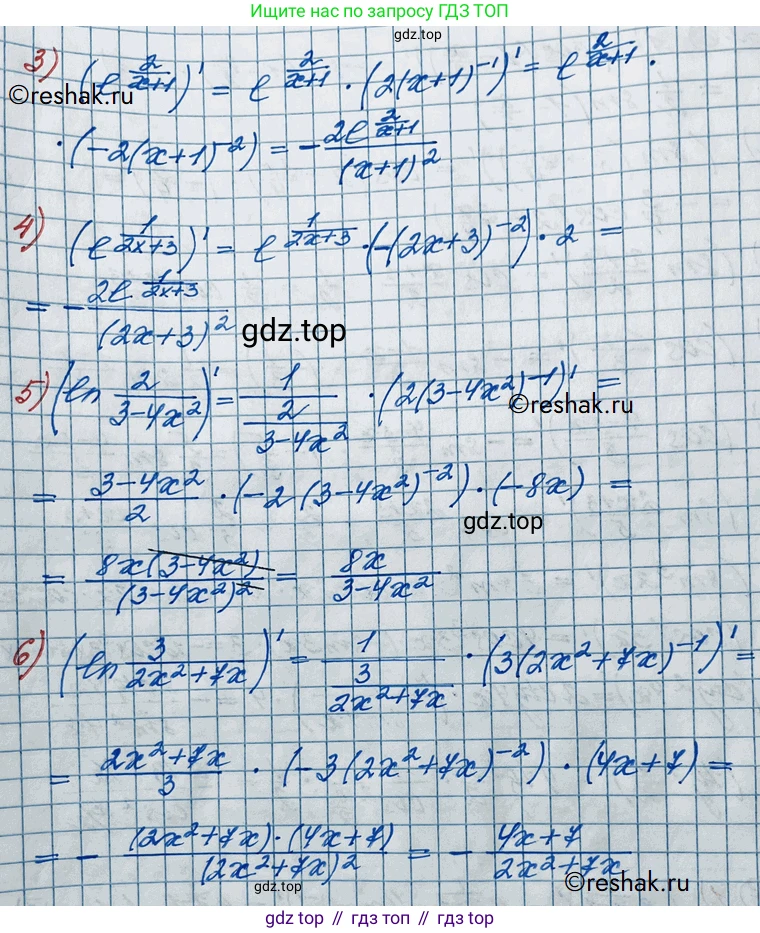 Ищите нас по запросу ГДЗ ТОП
gdz.top
3) (e^(2/(x+1)))' = e^(2/(x+1)) · (2(x+1)^-1)' = e^(2/(x+1)) ·
©reshak.ru
· (-2(x+1)^-2) = - 2e^(2/(x+1))/(x+1)^2
4) (e^(1/(2x+3)))' = e^(1/(2x+3)) · (-(2x+3)^-2) · 2 =
= - 2e^(1/(2x+3))/(2x+3)^2
gdz.top
5) (ln 2/(3-4x^2))' = 1/(2/(3-4x^2)) · (2(3-4x^2)^-1)' =
©reshak.ru
= (3-4x^2)/2 · (-2(3-4x^2)^-2) · (-8x) =
gdz.top
= 8x(3-4x^2)/(3-4x^2)^2 = 8x/(3-4x^2)
6) (ln 3/(2x^2+7x))' = 1/(3/(2x^2+7x)) · (3(2x^2+7x)^-1)' =
= (2x^2+7x)/3 · (-3(2x^2+7x)^-2) · (4x+7) =
= - (2x^2+7x)·(4x+7)/(2x^2+7x)^2 = - (4x+7)/(2x^2+7x)
gdz.top
©reshak.ru
gdz.top // гдз топ // gdz top